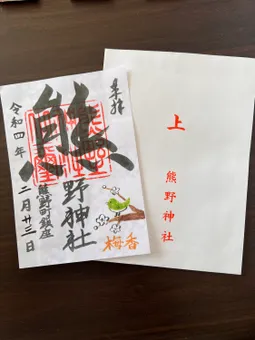 奉拝
熊野神社
熊野町鎮座
令和四年
二月廿三日
梅香
上
熊野神社